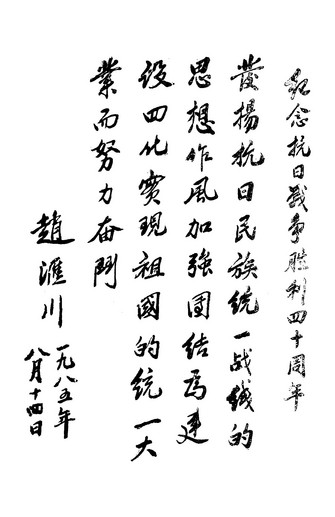 纪念抗日战争胜利四十周年
發揚抗日民族统一战线的
思想作風加強團结爲建
设四化實現祖國的统一大
業而努力奋鬥
趙滙川
一九八五年
八月十四日